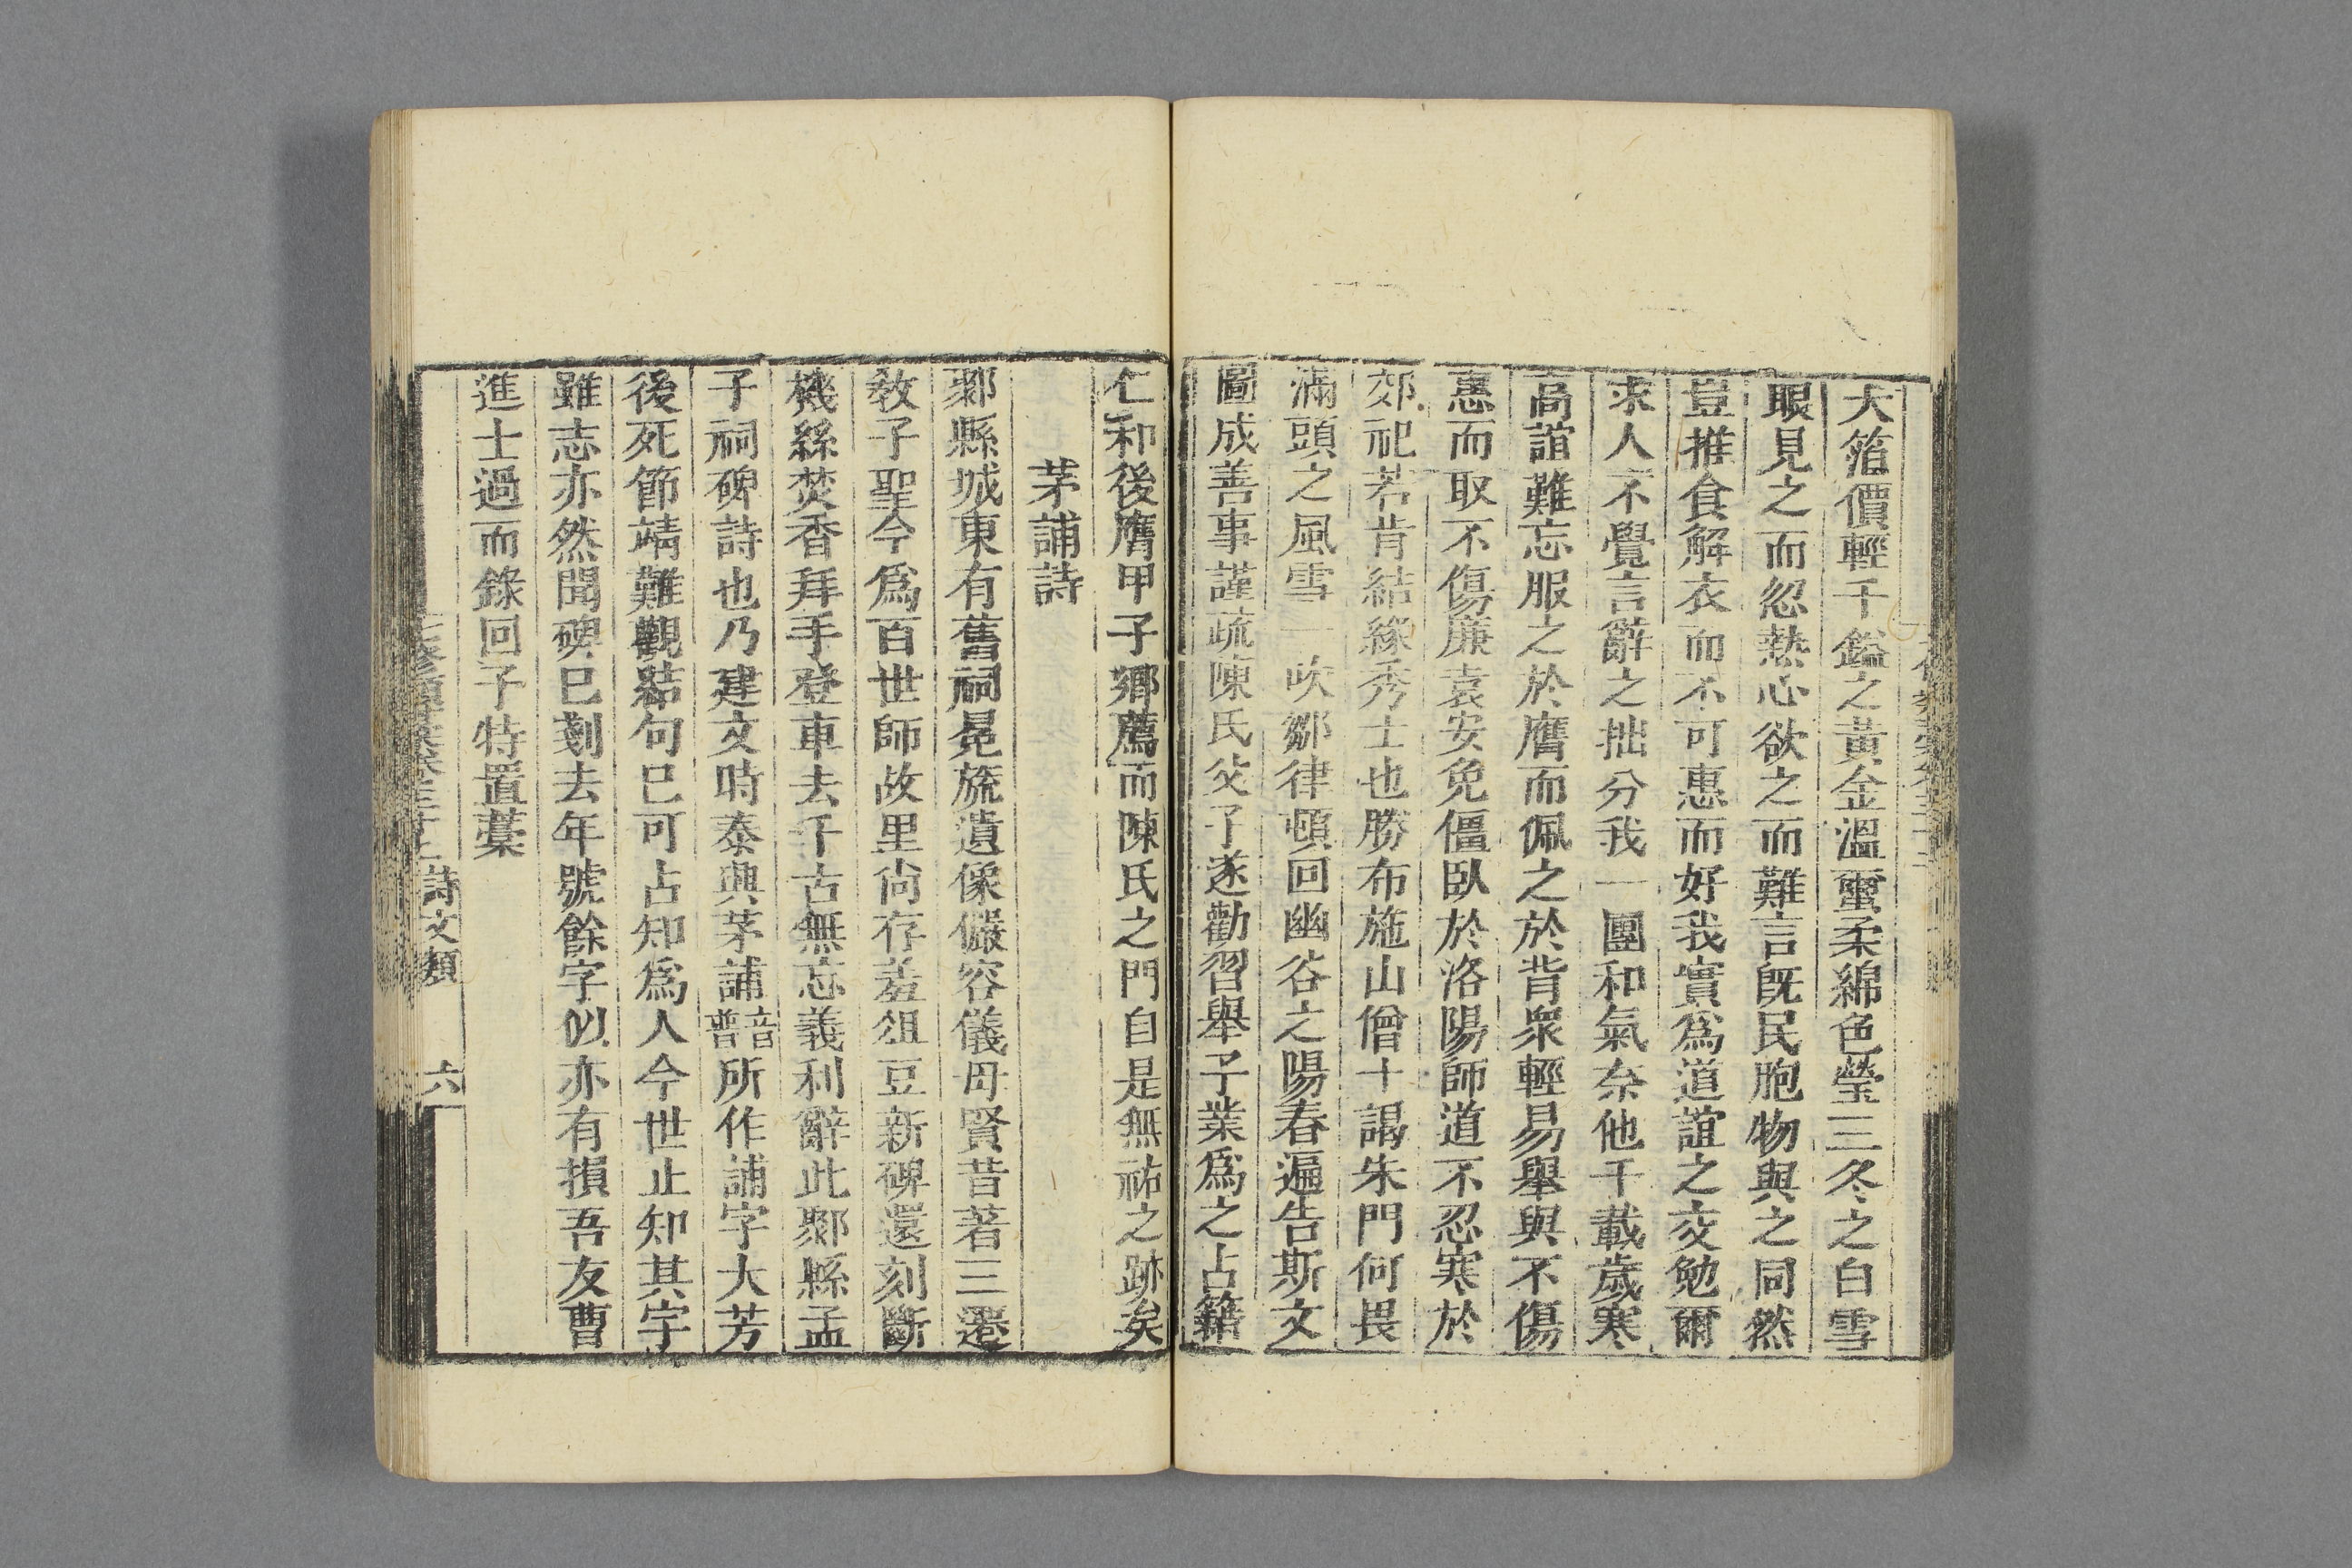 大箔價輕千鎰之黃金溫重柔綿色瑩三冬之白雪
眼見之而忽熱心欲之而難言旣民胞物與之同然
豈推食解衣而不可惠而好我實爲道誼之交勉爾
求人不覺言辭之拙分我一團和氣奈他千載歲寒
高誼難忘服之於膺而佩之於背衆輕易舉與不傷
惠而取不傷廉袁安免僵臥於洛陽師道不忍寒於
郊祀若肯結緣秀士也勝布施山僧十謁朱門何畏
滿頭之風雪一吹鄒律頓回幽谷之陽春遍告斯文
圖成善事謹疏陳氏父子遂勸習舉子業爲之占籍
仁和後膺甲子鄉薦而陳氏之門自是無祐之跡矣
茅誧詩
鄹縣城東有舊祠冕旒遺像儼容儀母賢昔著三遷
敎子聖今爲百世師故里尙存羞俎豆新碑還刻斷
機絲焚香拜手登車去千古無忘義利辭此鄹縣孟
子祠碑詩也乃建文時泰興茅誧音普所作誧字大芳
後死節靖難觀結句已可占知爲人今世止知其字
雖志亦然聞碑已剗去年號餘字似亦有損吾友曹
進士過而錄回子特置藁
詩文類 六